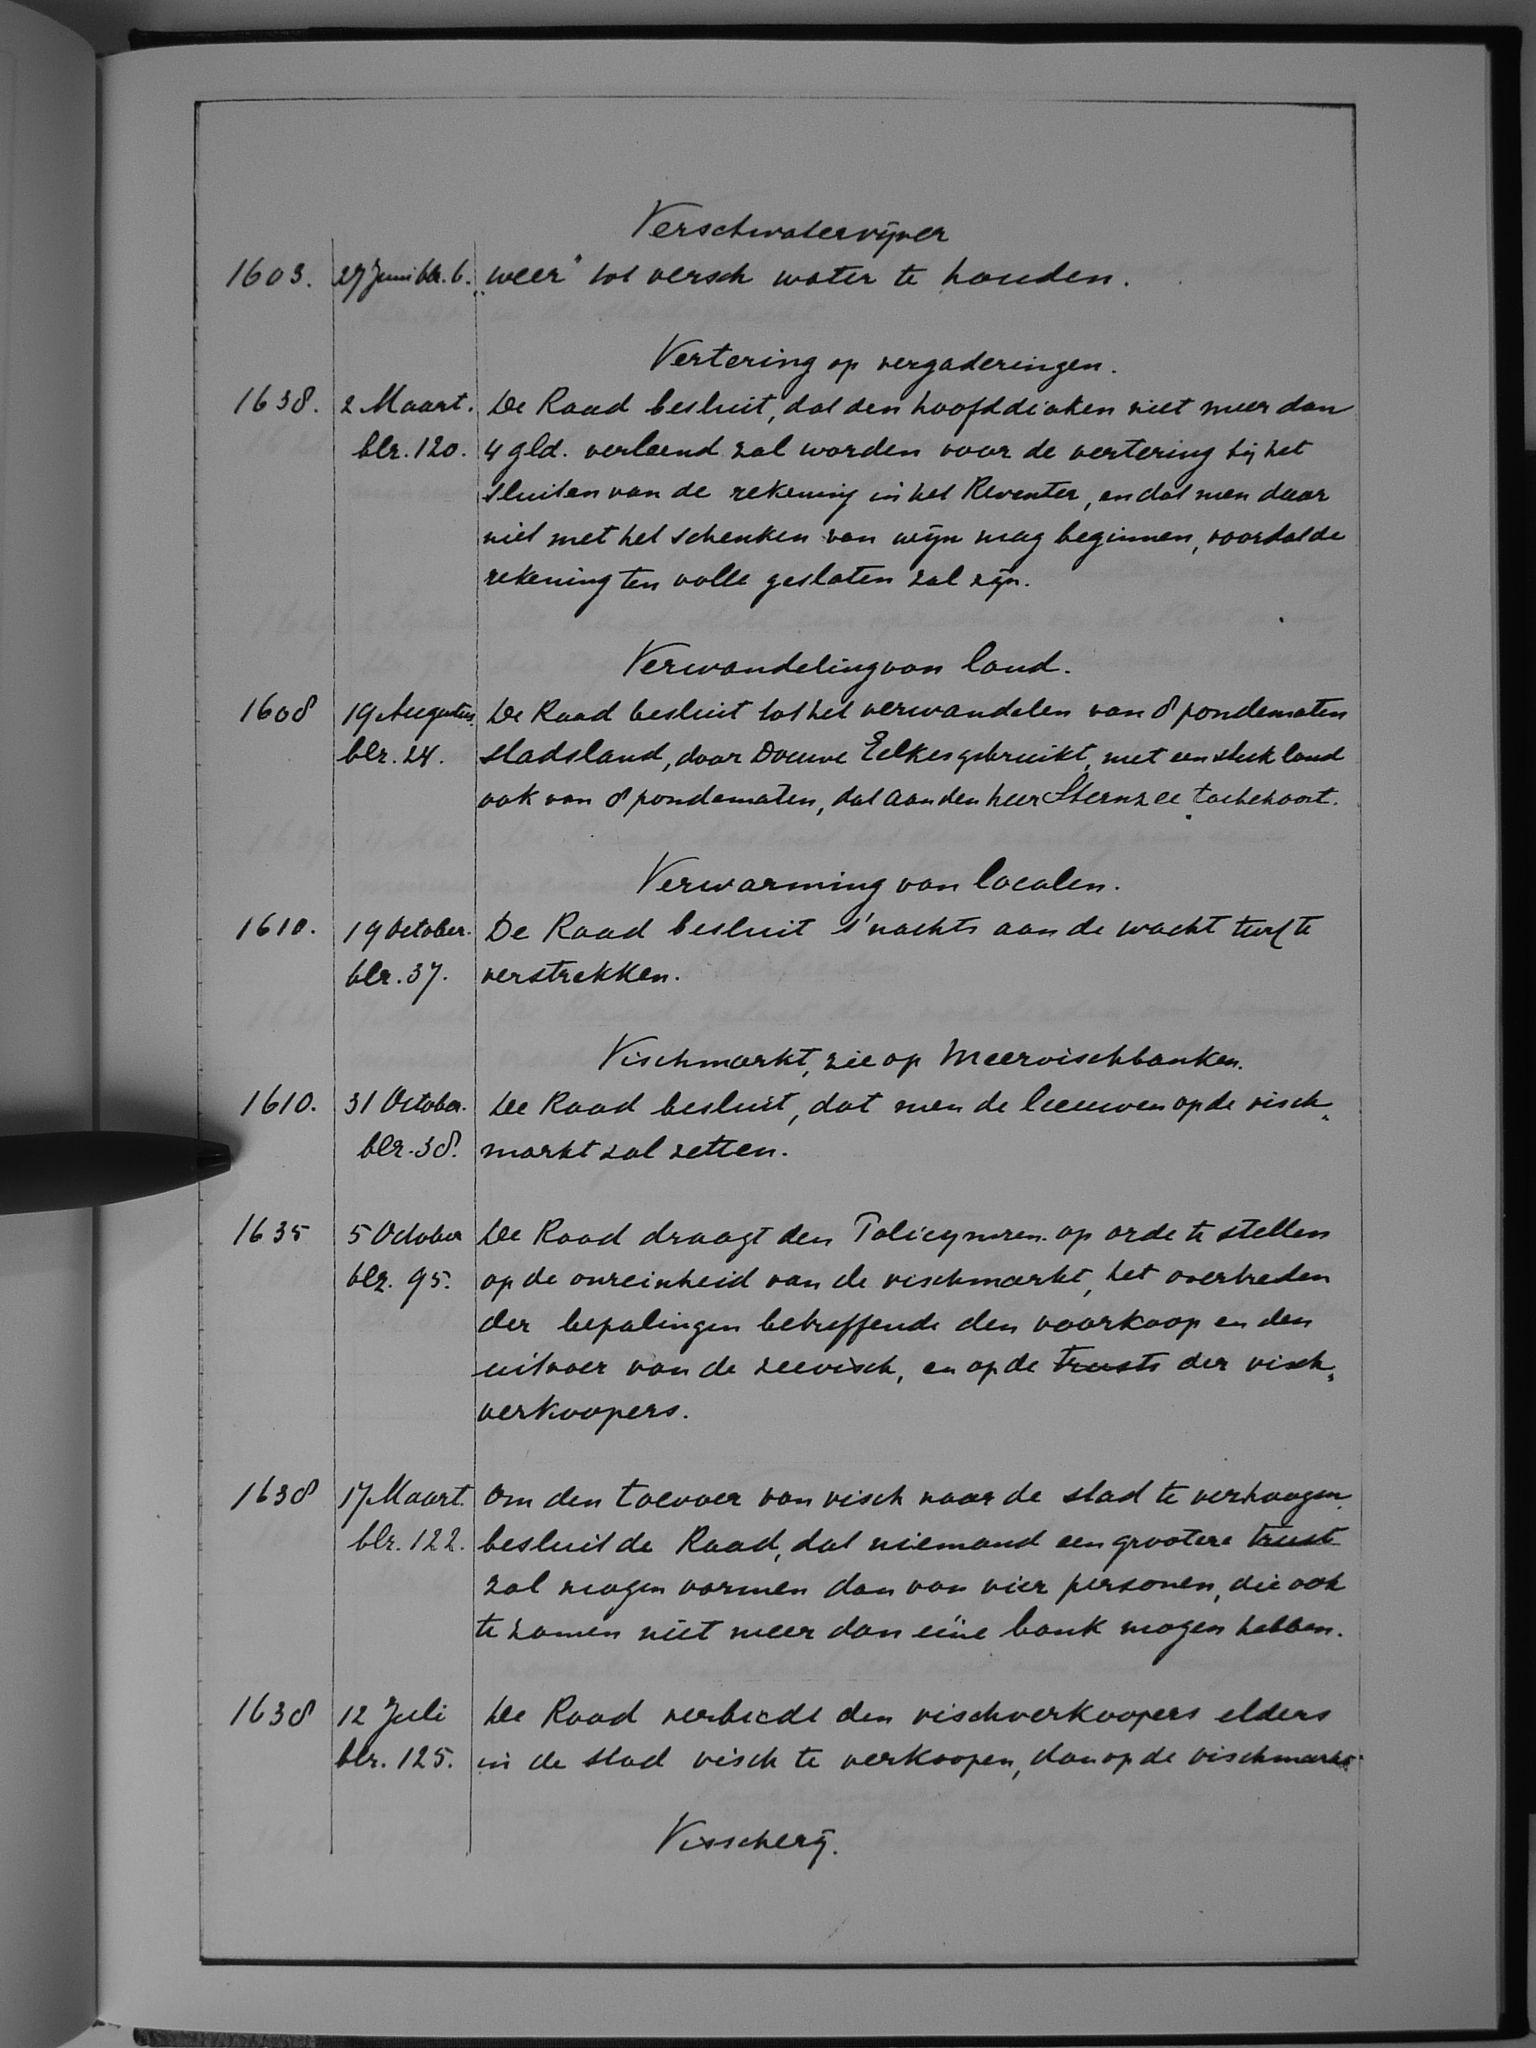 Verschwatervijver
1603. 27 Juni blr. 6. „weer" tot versch water te houden.
Vertering op vergaderingen.
1638. 2 Maart. De Raad besluit, dat den hoofddiaken niet meer dan
blr. 120. 4 gld. verleend zal worden voor de vertering bij het
sluiten van de rekening in het Reventer, en dat men daar
niet met het schenken van wijn mag beginnen, voordat de
rekening ten volle gesloten zal zijn.
Verwandeling van land.
1608 19 Augustus. De Raad besluit tot het verwandelen van 8 pondematen
blr. 24. stadsland, door Douwe Eelkes gebruikt, met een stuk land
ook van 8 pondematen, dat aan den heer Sternzee toebehoort.
Verwarming van localen.
1610. 19 October. De Raad besluit 's nachts aan de wacht turf te
blr. 37. verstrekken.
Vischmarkt, zie op Meervischbanken.
1610. 31 October. De Raad besluit, dat men de leeuwen op de visch-
blr. 38. markt zal zetten.
1635 5 October De Raad draagt den Policymren. op orde te stellen
blz. 95. op de onreinheid van de vischmarkt, het overtreden
der bepalingen betreffende den voorkoop en den
uitvoer van de zeevisch, en op de trusts der visch-
verkoopers.
1638 17 Maart. Om den toevoer van visch naar de stad te verhoogen
blr. 122. besluit de Raad, dat niemand een grootere trust
zal mogen vormen dan van vier personen, die ook
te zamen niet meer dan eéne bank mogen hebben.
1638 12 Juli De Raad verbiedt den vischverkoopers elders
blr. 125. in de stad visch te verkoopen, dan op de vischmarkt.
Visscherij.